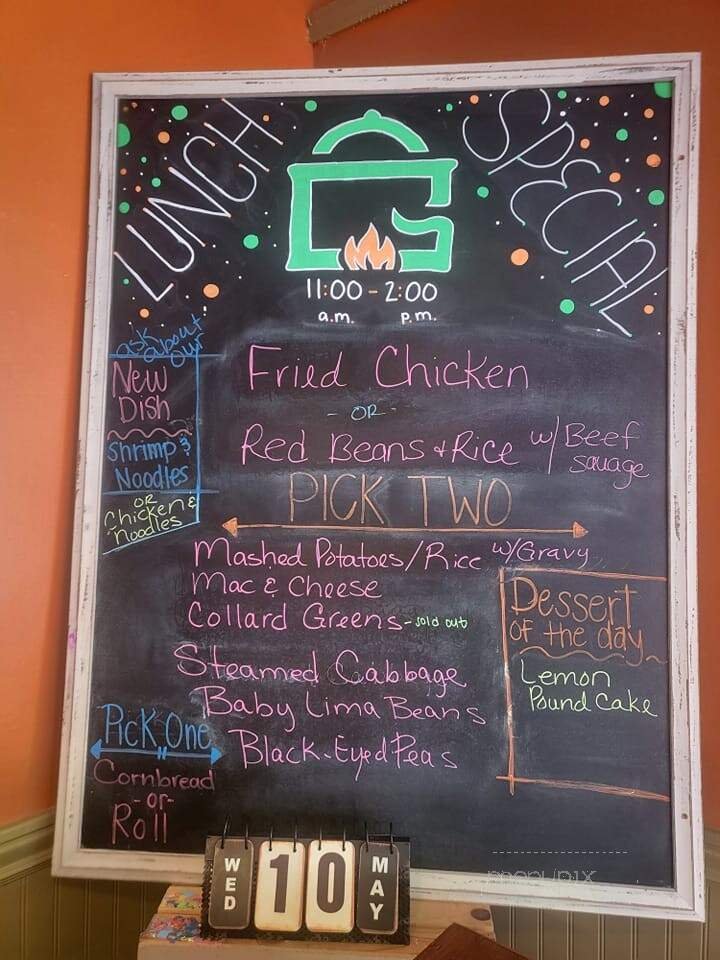 LUNCH SPECIAL
11:00 - 2:00
a.m. p.m.
ask about our
New
Dish
Shrimp &
Noodles
OR
Chicken &
Noodles
Fried Chicken
- OR -
Red Beans + Rice w/ Beef
sauage
PICK TWO
Mashed Potatoes/Rice w/Gravy
Mac & Cheese
Collard Greens - sold out
Steamed Cabbage
Baby Lima Beans
Black-Eyed Peas
Dessert
of the day
Lemon
Pound Cake
Pick One
Cornbread
-or-
Roll
WED 10 MAY
menupix